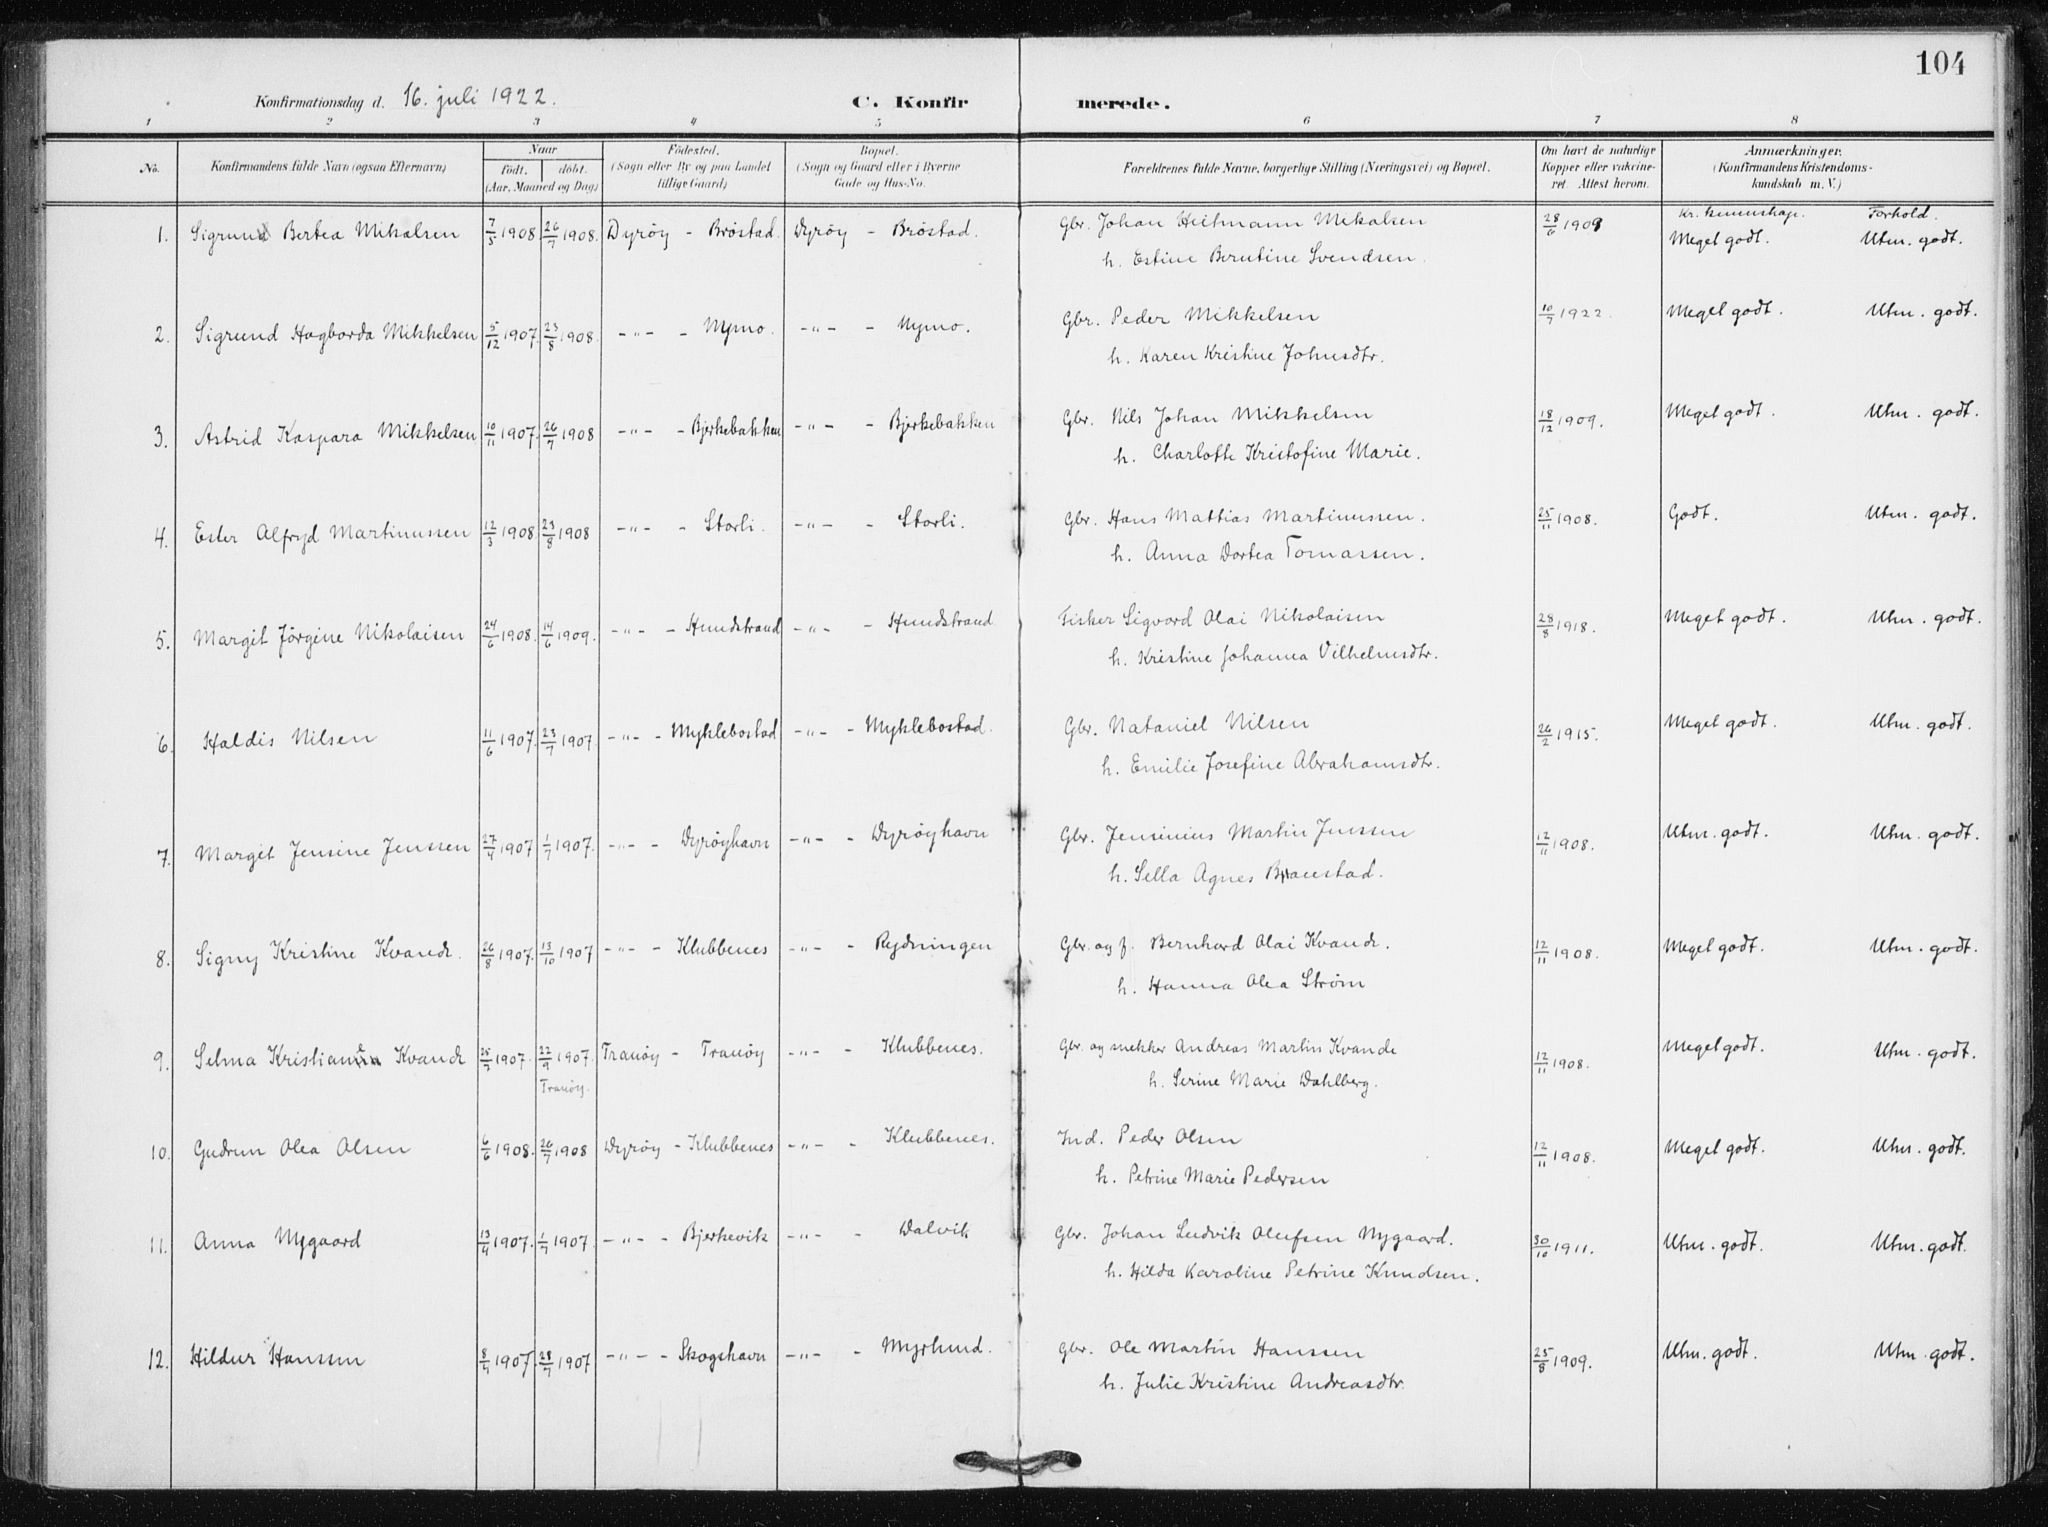 104
Konfirmationsdag d. 16. juli 1922. C. Konfirmerede.
1 2 3 4 5 6 7 8
No. Konfirmandens fulde Navn (ogsaa Efternavn) Naar født. døbt. (Aar, Maaned og Dag) Fødested. (Sogn eller By og paa Landet tillige Gaard) Bopæl. (Sogn og Gaard eller i Byerne Gade og Hus-No. Forældrenes fulde Navne, borgerlige Stilling (Næringsvei) og Bopæl. Om havt de naturlige Kopper eller vakcineret. Attest herom. Anmærkninger. (Konfirmandens Kristendomskundskab m. V.)
Kr. kunnskap. Forhold.
1. Sigrund Bertea Mikalsen 7/5 1908 26/7 1908. Dyrøy - Brøstad. Dyrøy - Brøstad. Gbr. Johan Heitmann Mikalsen 28/6 1909 Meget godt. Utm. godt.
h. Estine Berntine Svendsen.
2. Sigrund Hagborda Mikkelsen 5/12 1907 23/8 1908. -"- - Nymo. -"- - Nymo. Gbr. Peder Mikkelsen 10/7 1922. Meget godt. Utm. godt.
h. Karen Kristine Johnsdtr.
3. Astrid Kaspara Mikkelsen 10/11 1907. 26/7 1908 -"- - Bjerkebakken -"- - Bjerkebakken Gbr. Nils Johan Mikkelsen 18/12 1909. Meget godt. Utm. godt.
h. Charlotte Kristofine Marie.
4. Ester Alfryd Martinussen 12/3 1908. 23/8 1908 -"- - Storli. -"- - Storli. Gbr. Hans Mattias Martinussen. 25/11 1908. Godt. Utm. godt.
h. Anna Dortea Tomassen.
5. Margit Jørgine Nikolaisen 24/6 1908. 14/6 1909. -"- - Hundstrand -"- - Hundstrand. Fisker Sigvard Olai Nikolaisen 28/8 1918. Meget godt. Utm. godt.
h. Kristine Johanna Vilhelmsdtr.
6. Haldis Nilsen 11/6 1907. 23/7 1907. -"- - Myklebostad -"- - Myklebostad. Gbr. Nataniel Nilsen 26/2 1915. Meget godt. Utm. godt.
h. Emilie Josefine Abrahamsdtr.
7. Margit Jensine Jenssen 27/4 1907 1/7 1907. -"- - Dyrøyhavn -"- - Dyrøyhavn Gbr. Jensinius Martin Jenssen 12/11 1908. Utm. godt. Utm. godt.
h. Sella Agnes
8. Signy Kristine Kvande. 26/8 1907. 13/10 1907 -"- - Klubbenes -"- - Rydningen Gbr. og f. Bernhard Olai Kvande. 12/11 1908. Meget godt. Utm. godt.
h. Hanna Olea Strøm
9. Selma Kvande 25/7 1907. 22/9 1907. Tranøy - Tranøy -"- - Klubbenes. Gbr. og snekker Andreas Martin Kvande 12/11 1908. Meget godt. Utm. godt.
Tranøy. h. Serine Marie Dahlberg.
10. Gudrun Olea Olsen 6/6 1908. 26/7 1908 Dyrøy - Klubbenes -"- - Klubbenes. Ind. Peder Olsen 12/11 1908. Meget godt. Utm. godt.
h. Petrine Marie Pedersen
11. Anna Nygaard 13/4 1907. 1/7 1907. -"- - Bjerkevik -"- - Dalvik Gbr. Johan Ludvik Olufsen Nygaard. 30/10 1911. Utm. godt. Utm. godt.
h. Hilda Karoline Petrine Knudsen.
12. Hildur Hanssen 8/4 1907. 28/7 1907 -"- - Skogshavn -"- - Myrlund. Gbr. Ole Martin Hanssen 25/8 1909. Utm. godt. Utm. godt.
h. Julie Kristine Andreasdtr.